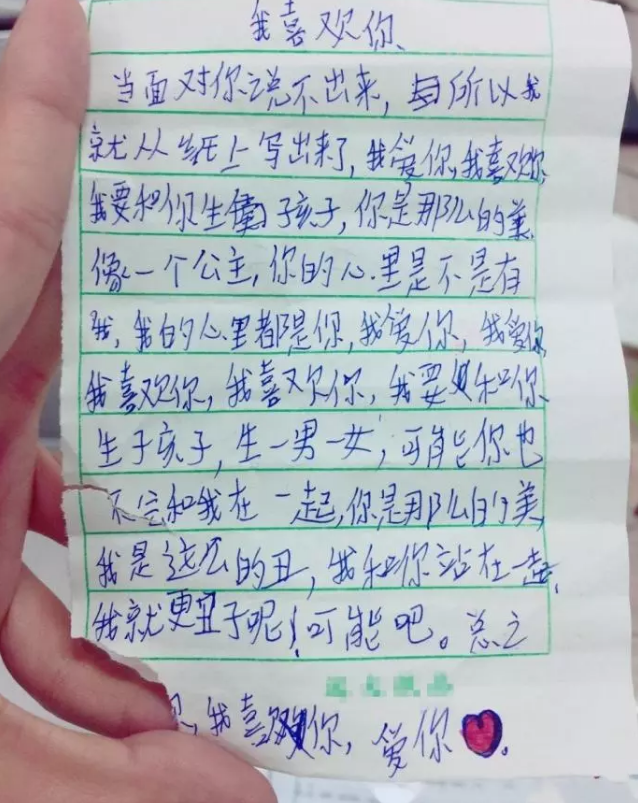 我喜欢你、
当面对你说不出来,所以我
就从纸上写出来了,我爱你,我喜欢你,
我要和你生孩子,你是那么的美
像一个公主,你的心里是不是有
我,我的心里都是你,我爱你,我爱你
我喜欢你,我喜欢你,我要和你
生子孩子,生一男一女,可能你也
不会和我在一起,你是那么的美,
我是这么的丑,我和你站在一起,
我就更丑了呢!可能吧。总之
,我喜欢你,爱你